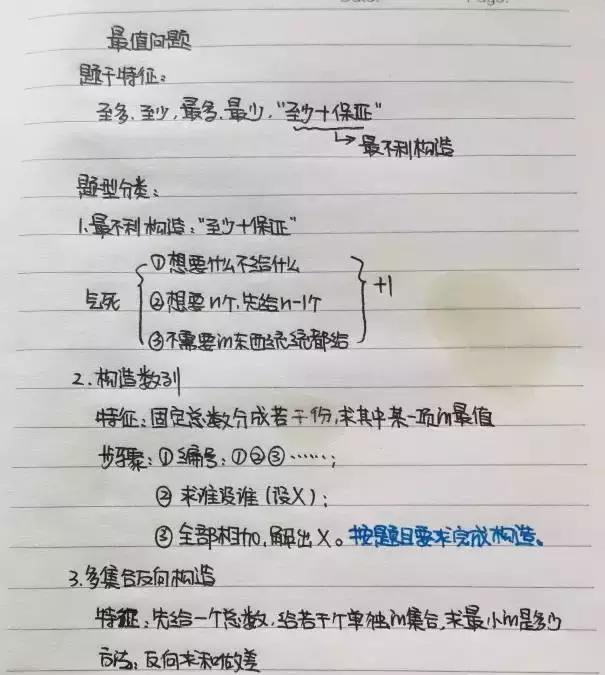 Page:
最值问题
题干特征:
至多,至少,最多,最少,"至少+保证"
→最不利构造
题型分类:
1.最不利构造:"至少+保证"
①想要什么不给什么
气死 ②想要n个,先给n-1个 +1
③不需要的东西统统都给
2.构造数列
特征:固定总数分成若干份,求其中某一项的最值
步骤:①编号:①②③……;
②求谁设谁(设X);
③全部相加,解出X。按题目要求完成构造。
3.多集合反向构造
特征:先给一个总数,给若干个单独的集合,求最小的是多少
方法:反向求和做差